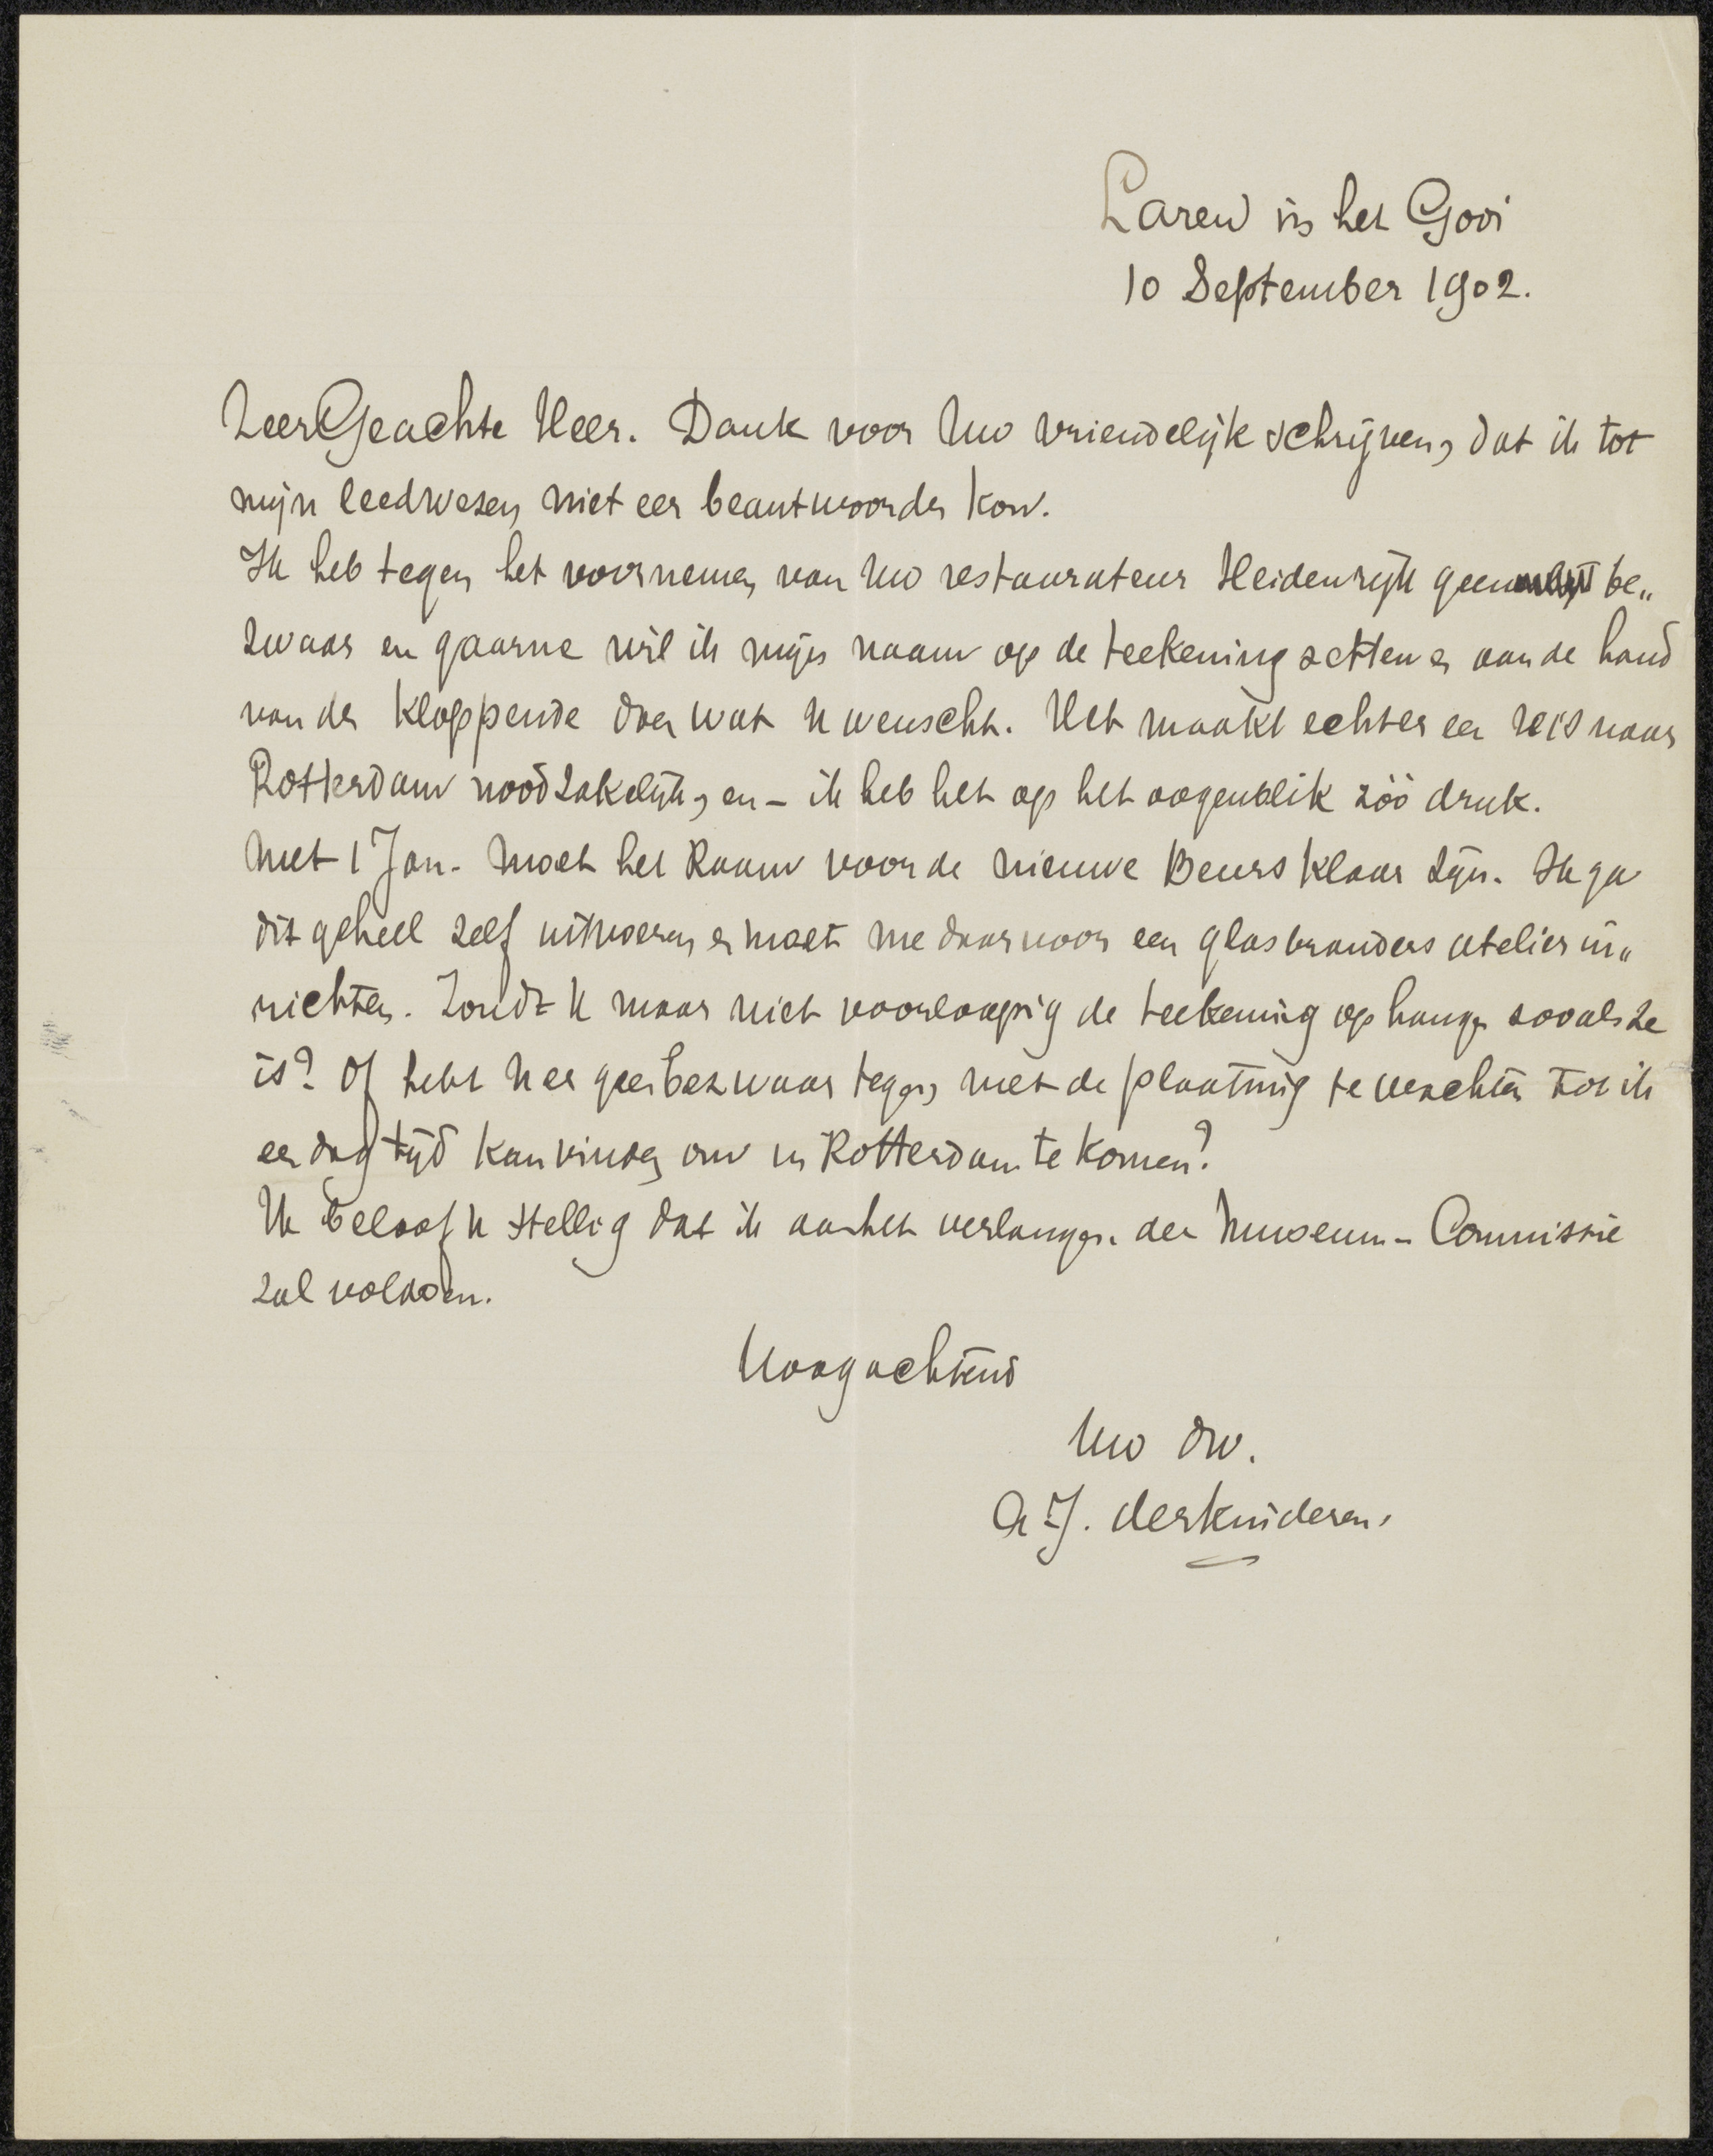 Laren in het Gooi
10 September 1902.
Zeer Geachte Heer. Dank voor Uw vriendelijk schrijven, dat ik tot
mijn leedwezen niet eer beantwoorden kon.
Ik heb tegen het voornemen van Uw restaurateur Heidenrijk geen be„
zwaar en gaarne wil ik mijn naam op de teekening zetten en aan de hand
van den kloppende doen wat U wenscht. Het maakt echter een reis naar
Rotterdam noodzakelijk, en – ik heb het op het oogenblik zóó druk.
Met 1 Jan. moet het Raam voor de nieuwe Beurs klaar zijn. Ik ga
dit geheel zelf uitvoeren en moet me daarvoor een glasbranders atelier in„
richten. Zoudt U maar niet voorloopig de teekening ophangen zooals ze
is? Of hebt U er geen bezwaar tegen, met de plaatsing te wachten tot ik
een dag tijd kan vinden om in Rotterdam te komen?
Ik beloof U stellig dat ik aan het verlangen der Museum-Commissie
zal voldoen.
Hoogachtend
Uw dw.
A J. derkinderen.